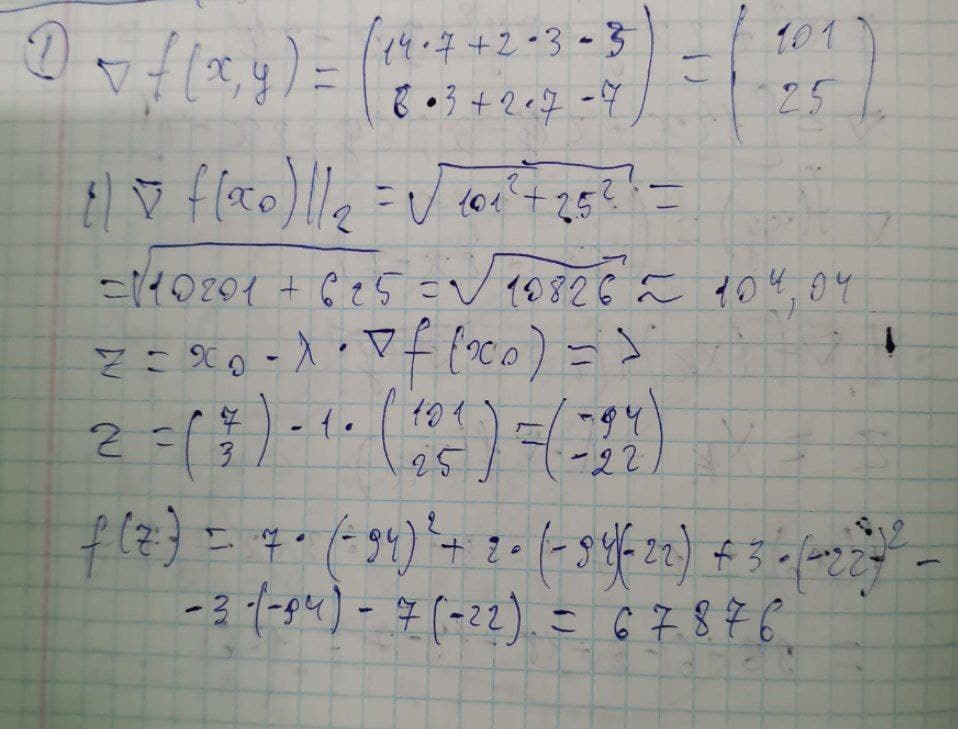 ① ∇ f(x,y) = (14·7 + 2·3 - 3
8·3 + 2·7 - 7) = (101
25)
|| ∇ f(x₀)||₂ = √101² + 25² =
= √10201 + 625 = √10826 ≈ 104,04
z = x₀ - λ · ∇ f(x₀) =>
z = (7
3) - 1· (101
25) = (-94
-22)
f(z) = 7· (-94)² + 2· (-94)(-22) + 3·(-22)² -
-3·(-94) - 7(-22) = 67876